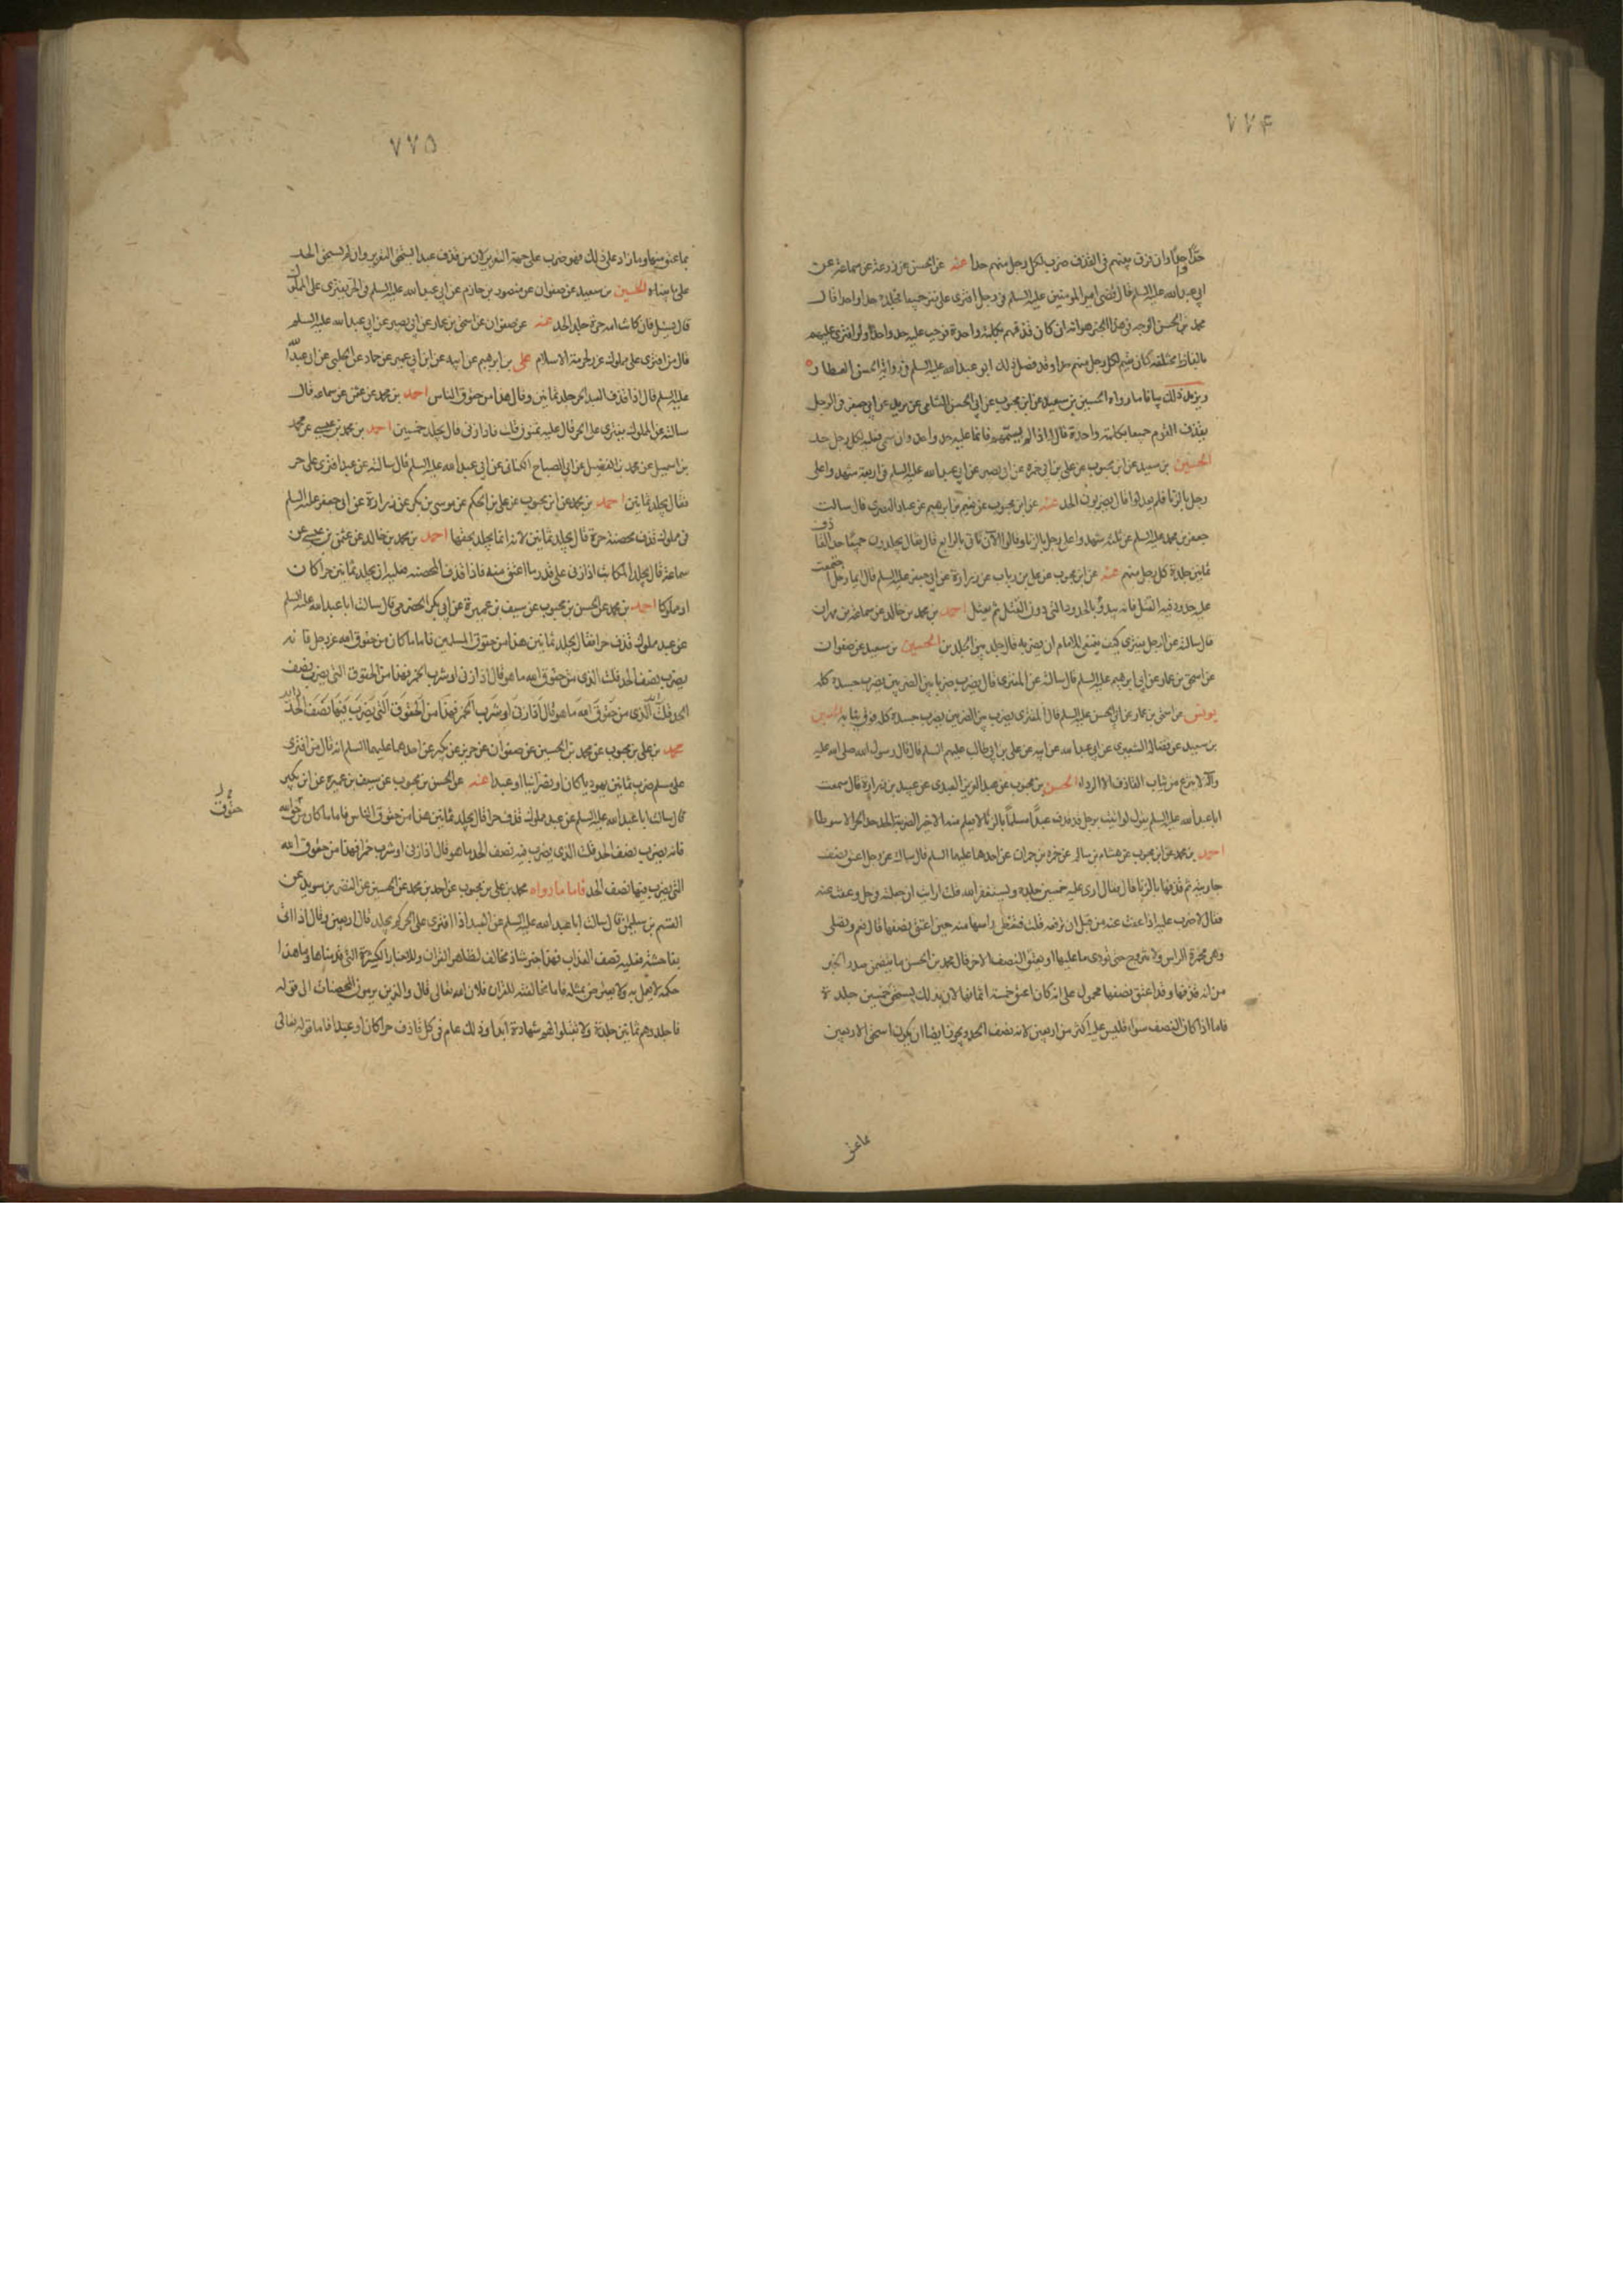 ٧٧۴
حدا واحدا وان فرق بينهم فى القذف ضرب لكل رجل منهم حدا عنه عن الحسن عن زرعة عن سماعة عن
ابى عبد الله عليه السلم قال قضى امير المومنين عليه السلم فى رجل افترى على نفر جميعا فجلده حدا واحدا قال
محمد بن الحسن الوجه فى هذا الخبر هو انه ان كان قذفهم بكلمة واحدة فوجب عليه حد واحد ولو افترى عليهم
بالفاظ مختلفه كان عليه لكل رجل منهم حد وقد فصل ذلك ابو عبد الله عليه السلم فى رواية الحسن العطار
ويزيد ذلك بيانا ما رواه الحسين بن سعيد عن ابن محبوب عن ابى الحسن الشامى عن بريد عن ابى جعفر فى الرجل
يقذف القوم جميعا بكلمة واحدة قال اذا لم يسمهم فانما عليه حد واحد وان سمى فعليه لكل رجل حد
الحسين بن سعيد عن ابن محبوب عن على بن ابى حمزه عن ابى بصير عن ابى عبد الله عليه السلم فى اربعة شهدوا على
رجل بالزنا فلم يعدلوا قال يضربون الحد عنه عن ابن محبوب عن نعيم بن ابرهيم عن عباد البصرى قال سالت
جعفر بن محمد عليه السلم عن ثلثه شهدوا على رجل بالزنا وقالوا الآن ناتى بالرابع قال فقال يجلدون جميعا حد القاذف
ثمانين جلدة كل رجل منهم عنه عن ابن محبوب عن على بن رياب عن زرارة عن ابى جعفر عليه السلم قال ايما رجل اجتمعت
عليه حدود فيها القتل فانه يبدؤ بالحدود التى دون القتل ثم يقتل احمد بن محمد بن خالد عن سماعة بن مهران
قال سالته عن الرجل يفترى كيف ينبغى للامام ان يضربه قال جلد بين الجلدين الحسين بن سعيد عن صفوان
عن اسحق بن عمار عن ابى ابرهيم عليه السلم قال سالته عن المفترى قال يضرب ضربا بين الضربين يضرب جسده كله
يونس عن اسحق بن عمار عن ابى الحسن عليه السلم قال المفترى يضرب بين الضربين يضرب جسده كله فوق ثيابه الحسين
بن سعيد عن فضالة الشعيرى عن ابى عبد الله عن ابيه عن على بن ابى طالب عليهم السلم قال قال رسول الله صلى الله عليه
وآله لا ينزع من ثياب القاذف الا الرداء الحسن بن محبوب عن عبد العزيز العبدى عن عبيد بن زرارة قال سمعت
ابا عبد الله عليه السلم يقول لو اتيت برجل قد قذف عبدا مسلما بالزنا لا يعلم منه الا خيرا لضربته الحد حد الحر الا سوطا
احمد بن محمد عن ابن محبوب عن هشام بن سالم عن حمزه بن حمران عن احدهما عليهما السلم قال سالته عن رجل اعتق نصف
جاريته ثم قذفها بالزنا قال فقال ارى عليه خمسين جلده ويستغفر الله قلت ارايت ان جعلته فى حل وعفت عنه
فقال لا ضرب عليه اذا عفت عنه من قبل ان ترفعه قلت فتغطى راسها منه حين اعتق نصفها قال نعم وتصلى
وهى مخمرة الراس ولا تتزوج حتى تودى ما عليها او يعتق النصف الاخر قال محمد بن الحسن ما يتضمن صدر الخبر
من انه قذفها وقد اعتق نصفها محمول على انه كان اعتق خمسة اثمانها لان بذلك يستحق خمسين جلدة
فاما اذا كان النصف سواء فليس عليه اكثر من اربعين لانه نصف الحد ويجوز ايضا ان يكون استحق الاربعين
بما عتق
٧٧٥
بما عتق منها وما زاد على ذلك فهو ضرب على جهة التعزير لان من قذف عبدا يستحق التعزير وان لم يستحق الحد
على ما بيناه الحسين بن سعيد عن صفوان عن منصور بن حازم عن ابى عبد الله عليه السلم فى الحر يفترى على المملوك
قال يسئل فان كانت امه حرة جلد الحد عنه عن صفوان عن اسحق بن عمار عن ابى بصير عن ابى عبد الله عليه السلم
قال من افترى على مملوك عزر لحرمة الاسلام على بن ابرهيم عن ابيه عن ابن ابى عمير عن حماد عن الحلبى عن ابى عبد الله
عليه السلم قال اذا قذف العبد الحر جلد ثمانين وقال هذا من حقوق الناس احمد بن محمد عن عثمن عن سماعه قال
سالته عن المملوك يفترى على الحر قال عليه ثمنون قلت فاذا زنى قال يجلد خمسين احمد بن محمد بن عيسى عن محمد
بن اسمعيل عن محمد بن الفضيل عن ابى الصباح الكنانى عن ابى عبد الله عليه السلم قال سالته عن عبد افترى على حر
فقال يجلد ثمانين احمد بن محمد عن ابن محبوب عن على بن الحكم عن موسى بن بكر عن زرارة عن ابى جعفر عليه السلم
فى مملوك قذف محصنة حرة قال يجلد ثمانين لانه انما يجلد بحقها احمد بن محمد بن خالد عن عثمن بن عيسى عن
سماعة قال يجلد المكاتب اذا زنى على قدر ما اعتق منه فاذا قذف المحصنه فعليه ان يجلد ثمانين حرا كان
او مملوكا احمد بن محمد عن الحسن بن محبوب عن سيف بن عميرة عن ابى بكر الحضرمى قال سالت ابا عبد الله عليه السلم
عن عبد مملوك قذف حرا فقال يجلد ثمانين هذا من حقوق المسلمين فاما ما كان من حقوق الله عز وجل فانه
يضرب نصف الحد قلت الذى من حقوق الله ما هو قال اذا زنى او شرب الخمر فهذا من الحقوق التى يضرب نصف
الحد قلت الذى من حقوق الله ما هو قال اذا زنى او شرب الخمر فهذا من الحقوق التى يضرب فيها نصف الحد
محمد بن على بن محبوب عن محمد بن الحسين عن صفوان عن حريز عن بكير عن احدهما عليهما السلم انه قال من افترى
على مسلم ضرب ثمانين يهوديا كان او نصرانيا او عبدا عنه عن الحسن بن محبوب عن سيف بن عميرة عن ابن بكير
قال سالت ابا عبد الله عليه السلم عن عبد مملوك قذف حرا قال يجلد ثمانين هذا من حقوق الناس فاما ما كان من حق الله
حقوق
فانه يضرب نصف الحد قلت الذى يضرب فيه نصف الحد ما هو قال اذا زنى او شرب خمرا فهذا من حقوق الله
التى يضرب فيها نصف الحد فاما ما رواه محمد بن على بن محبوب عن احمد بن محمد عن الحسين عن النضر بن سويد عن
القسم بن سليمان قال سالت ابا عبد الله عليه السلم عن العبد اذا افترى على الحر كم يجلد قال اربعين وقال اذا اتى
بفاحشة فعليه نصف العذاب فهذا خبر شاذ مخالف لظاهر القران وللاخبار الكثيرة التى قدمناها وما هذا
حكمه لا يعمل به ولا يعترض بمثله فاما مخالفته للقران فلان الله تعالى قال والذين يرمون المحصنات الى قوله
فاجلدوهم ثمانين جلدة ولا تقبلوا لهم شهادة ابدا وذلك عام فى كل قاذف حرا كان او عبدا فاما قوله تعالى